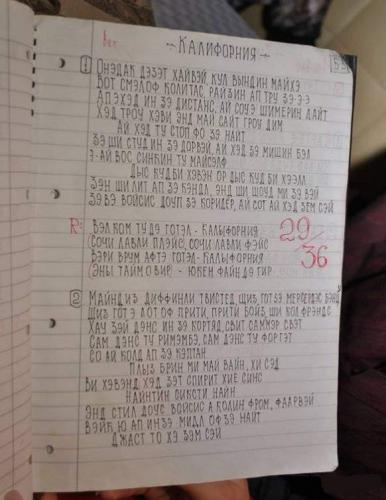 Калифорния
59
1 Онэдак дэзэт хайвэй кул вындин майхэ
Вот смэлоф колитас, райзин ап тру зэ-э-э
Апэхэд ин зэ дистанс, ай соуэ шимерин лайт
Хэд гроу хэви, энд май сайт гроу дим
Ай хэд ту стоп фо зэ найт
Зэ ши студ ин зэ дорвэй, ай хэд зэ мишин бэл
Э-ай вос синкин ту майсэлф
Дыс кудби хэвэн ор дыс куд би хээл
Зэн ши лит ап зэ кэндл, энд ши шоуд ми зэ вэй
Зэ вэ войсис доун зэ коридер, ай сот ай хэд зем сэй
R: Вэлком ту дэ готэл - Калыфорния
(Сочи лавли плэйс, сочи лавли фэйс)
Вэри врум афтэ готэл - Калыфорния
(Эны тайм овир) - юкен файн де гир
29/36
2 Майнд из диффинли твистед, шиз готзэ мерседэс бэнц
Шиз гот э лот оф прити, прити бойз, ши кол фрэндс
Хау зэй дэнс ин зэ кортяд, свит саммэр свэт
Сам дэнс ту римэмбэ, сам дэнс ту форгэт
Со ай колд ап зэ кэптан
Плыз брин ми май вайн, хи сэд
Ви хэвэнд хэд зэт спирит хие синс
Найнтин сиксти найн
Энд стил доус войсис а колин фром, фаарвэй
Вэйк ю ап ин зэ мидл оф зэ найт
Джаст то хэ зэм сэй